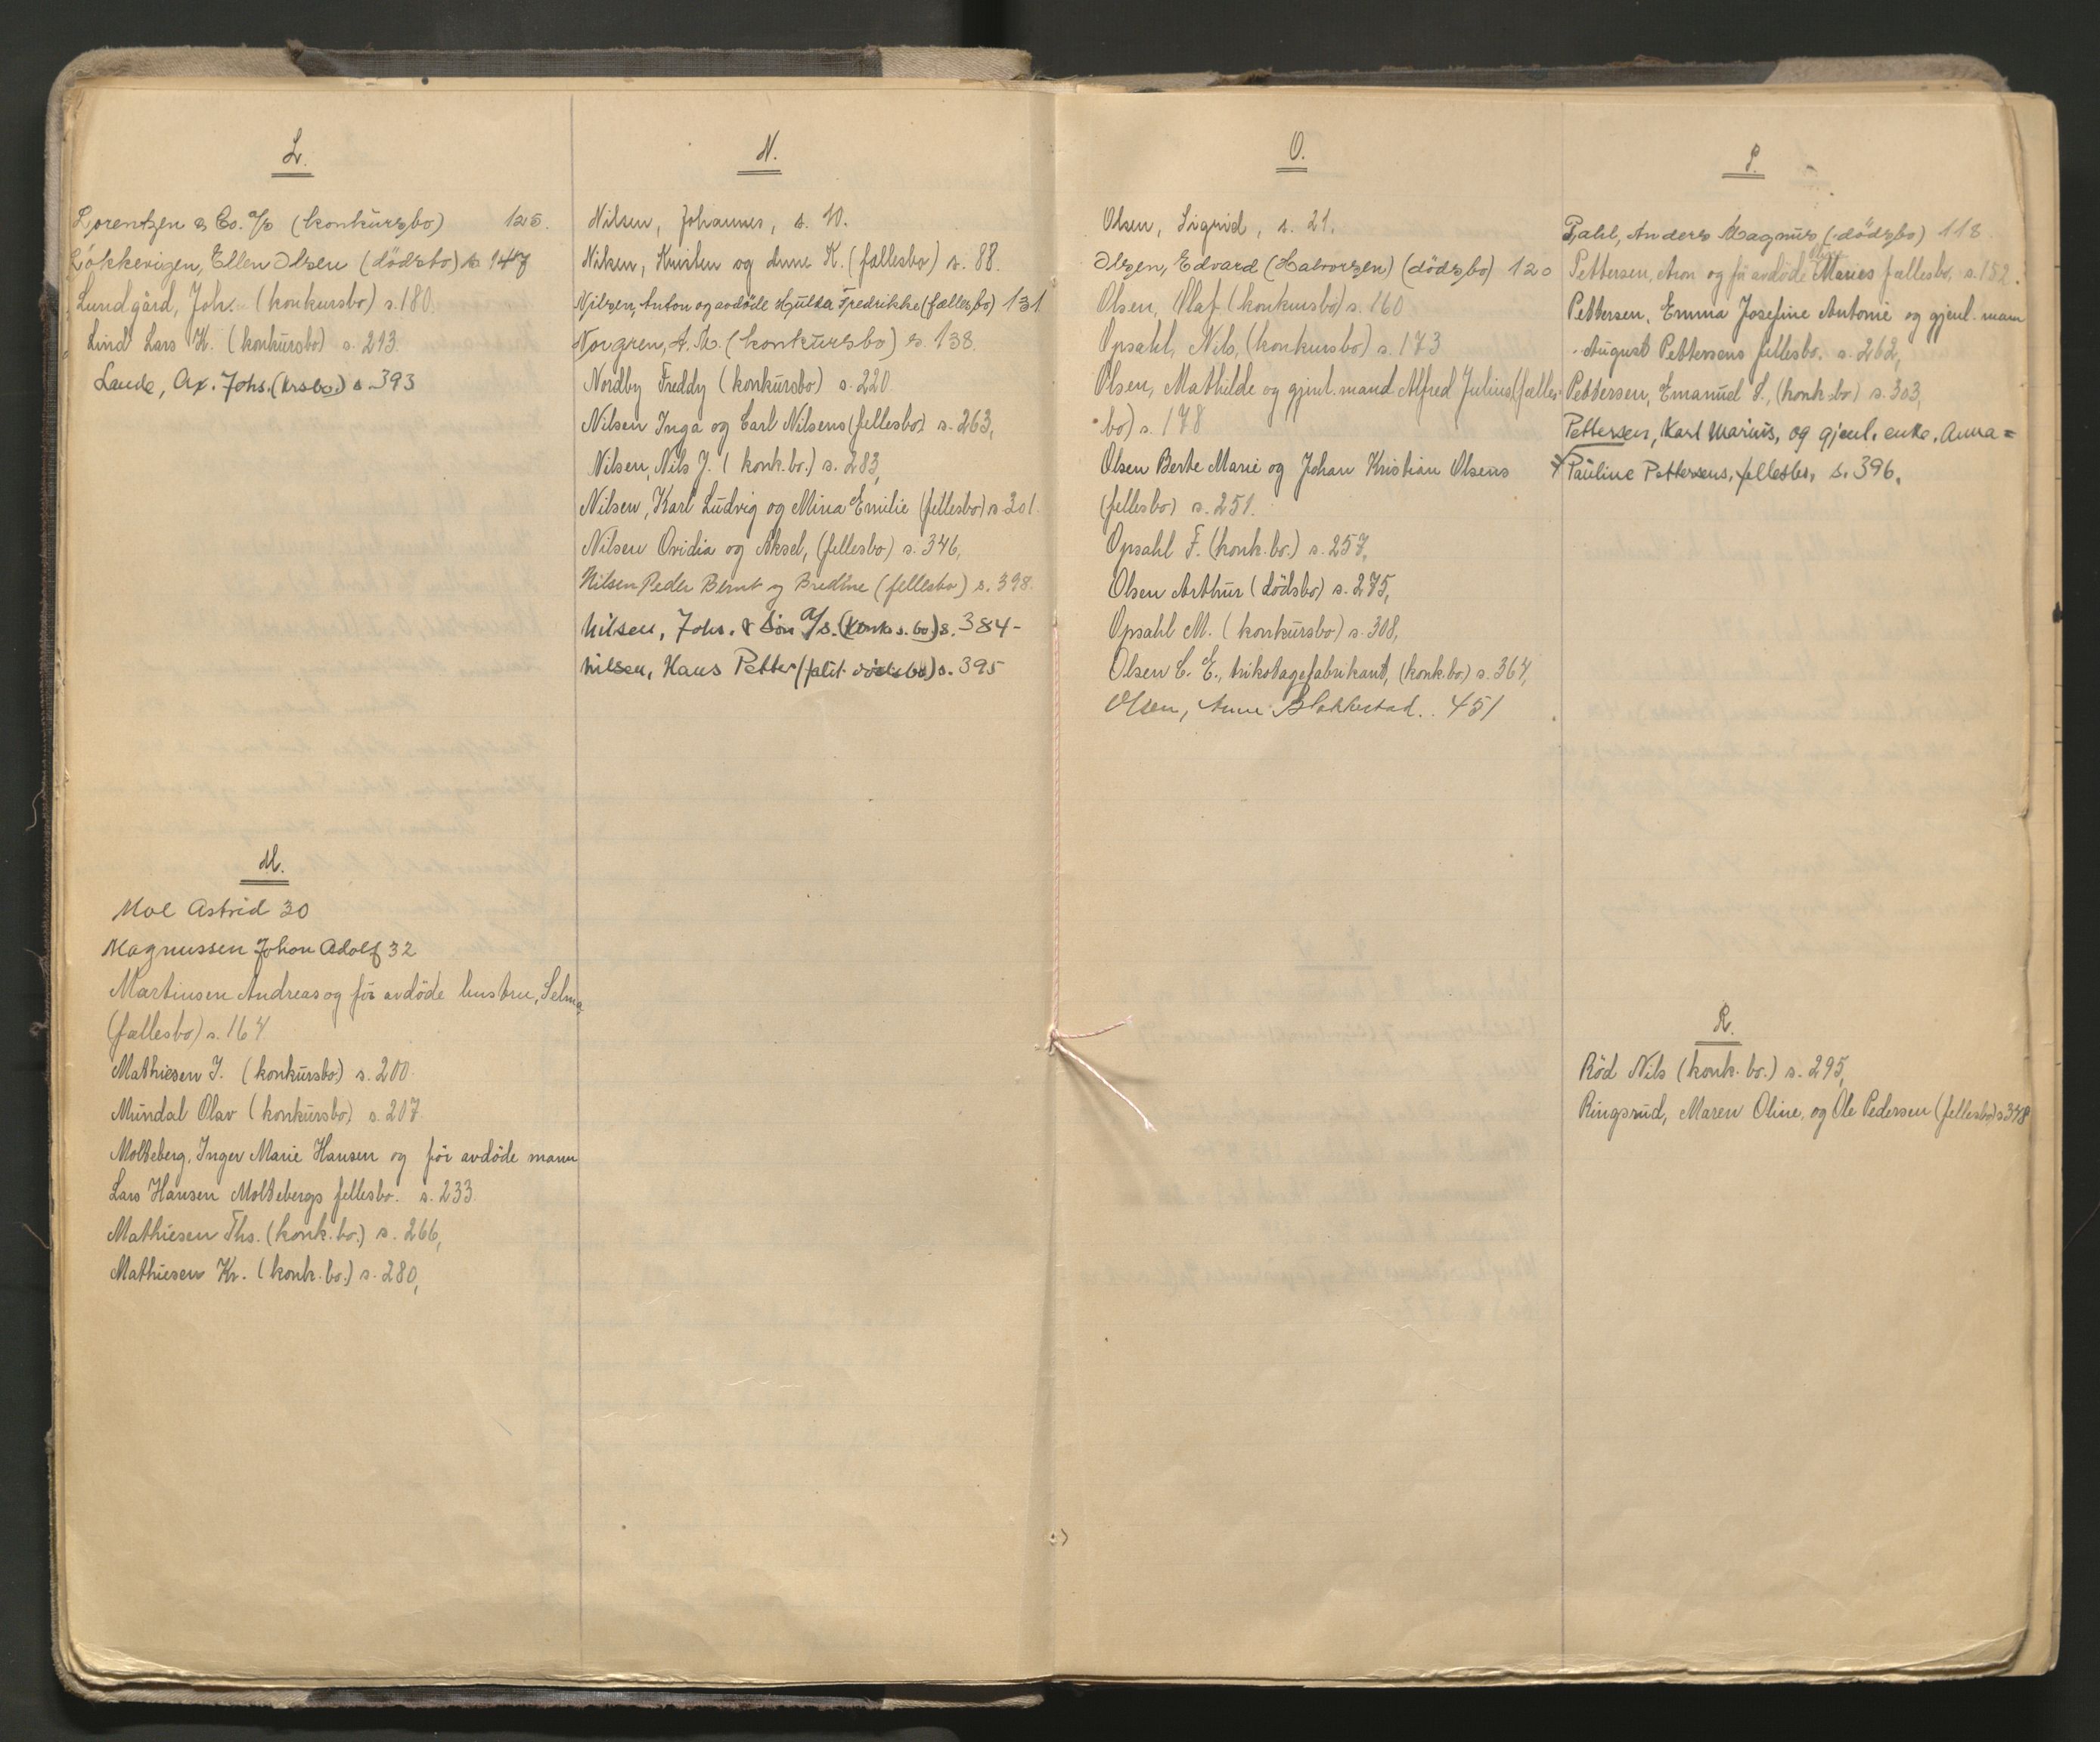 L.
Lorentzen & Co. a/s (konkursbo) 125.
Lökkevigen, Ellen Olsen (dödsbo) s 147
Lundgård, Joh. (konkursbo) s. 180.
Lind Lars K. (konkursbo) s. 213.
Laude, Ax. Johs. (krsbo) s. 393
M.
Moe Astrid 30
Magnussen Johan Adolf 32
Martinsen Andreas og før avdöde hustru, Selma,
(fællesbo) s. 164
Mathiesen J. (konkursbo) s. 200.
Mundal Olav (konkursbo) s. 207.
Molteberg, Inger Marie Hansen og før avdöde mann
Lars Hansen Moltebergs fellesbo. s. 233.
Mathiesen Ths. (konk. bo.) s. 266,
Mathiesen Kr. (konk. bo.) s. 280,
N.
Nilsen, Johannes, s. 10.
Nilsen, Knirten og Anne K. (fællesbo) s. 88.
Nilsen, Anton og avdöde Hulda Fredrikke (fællesbo) 131
Norgren, A. M. (konkursbo) s. 138.
Nordby Freddy (konkursbo) s. 220.
Nilsen Inga og Carl Nilsens (fellesbo) s. 263,
Nilsen, Nils J. (konk. bo.) s. 283,
Nilsen, Karl Ludvig og Mina Emilie (fellesbo) s 301.
Nilsen Ovidia og Aksel, (fellesbo) s. 346,
Nilsen Peder Bernt og Bredine (fellesbo) s. 398.
Nilsen, Johs. & Sön A/S. (konk. s. bo) s. 384-
Nilsen, Hans Petter (falit dödsbo) s. 395
O.
Olsen, Sigrid, s. 21.
Olsen, Edvard (Halvorsen) (dödsbo) 120
Olsen, Olaf (konkursbo) s. 160
Opsahl, Nils, (konkursbo) s. 173
Olsen, Mathilde og gjenl. mand Alfred Julius (fælles
bo) s. 178
Olsen Berte Marie og Johan Kristian Olsens
(fellesbo) s. 251.
Opsahl F. (konk. bo.) s. 257,
Olsen Arthur (dödsbo) s. 275,
Opsahl M. (konkursbo) s. 308,
Olsen C. E., trikotagefabrikant, (konk. bo.) s. 364,
Olsen, Anne Blakkestad. . 451
P.
Pahl, Anders Magnus (dödsbo) 118
Pettersen, Aron og før avdöde Maries fællesbo, s. 152.
Pettersen, Emma Josefine Antonie og gjenl. mann
August Pettersens fellesbo. s. 262,
Pettersen, Emanuel S., (konk. bo) s. 303,
Pettersen, Karl Marius, og gjenl. enke, Anna=
Pauline Pettersens, fellesbo, s. 396.
R.
Röd Nils (konk. bo.) s. 295,
Ringsrud, Maren Oline, og Ole Pedersen (fellesbo) s 348